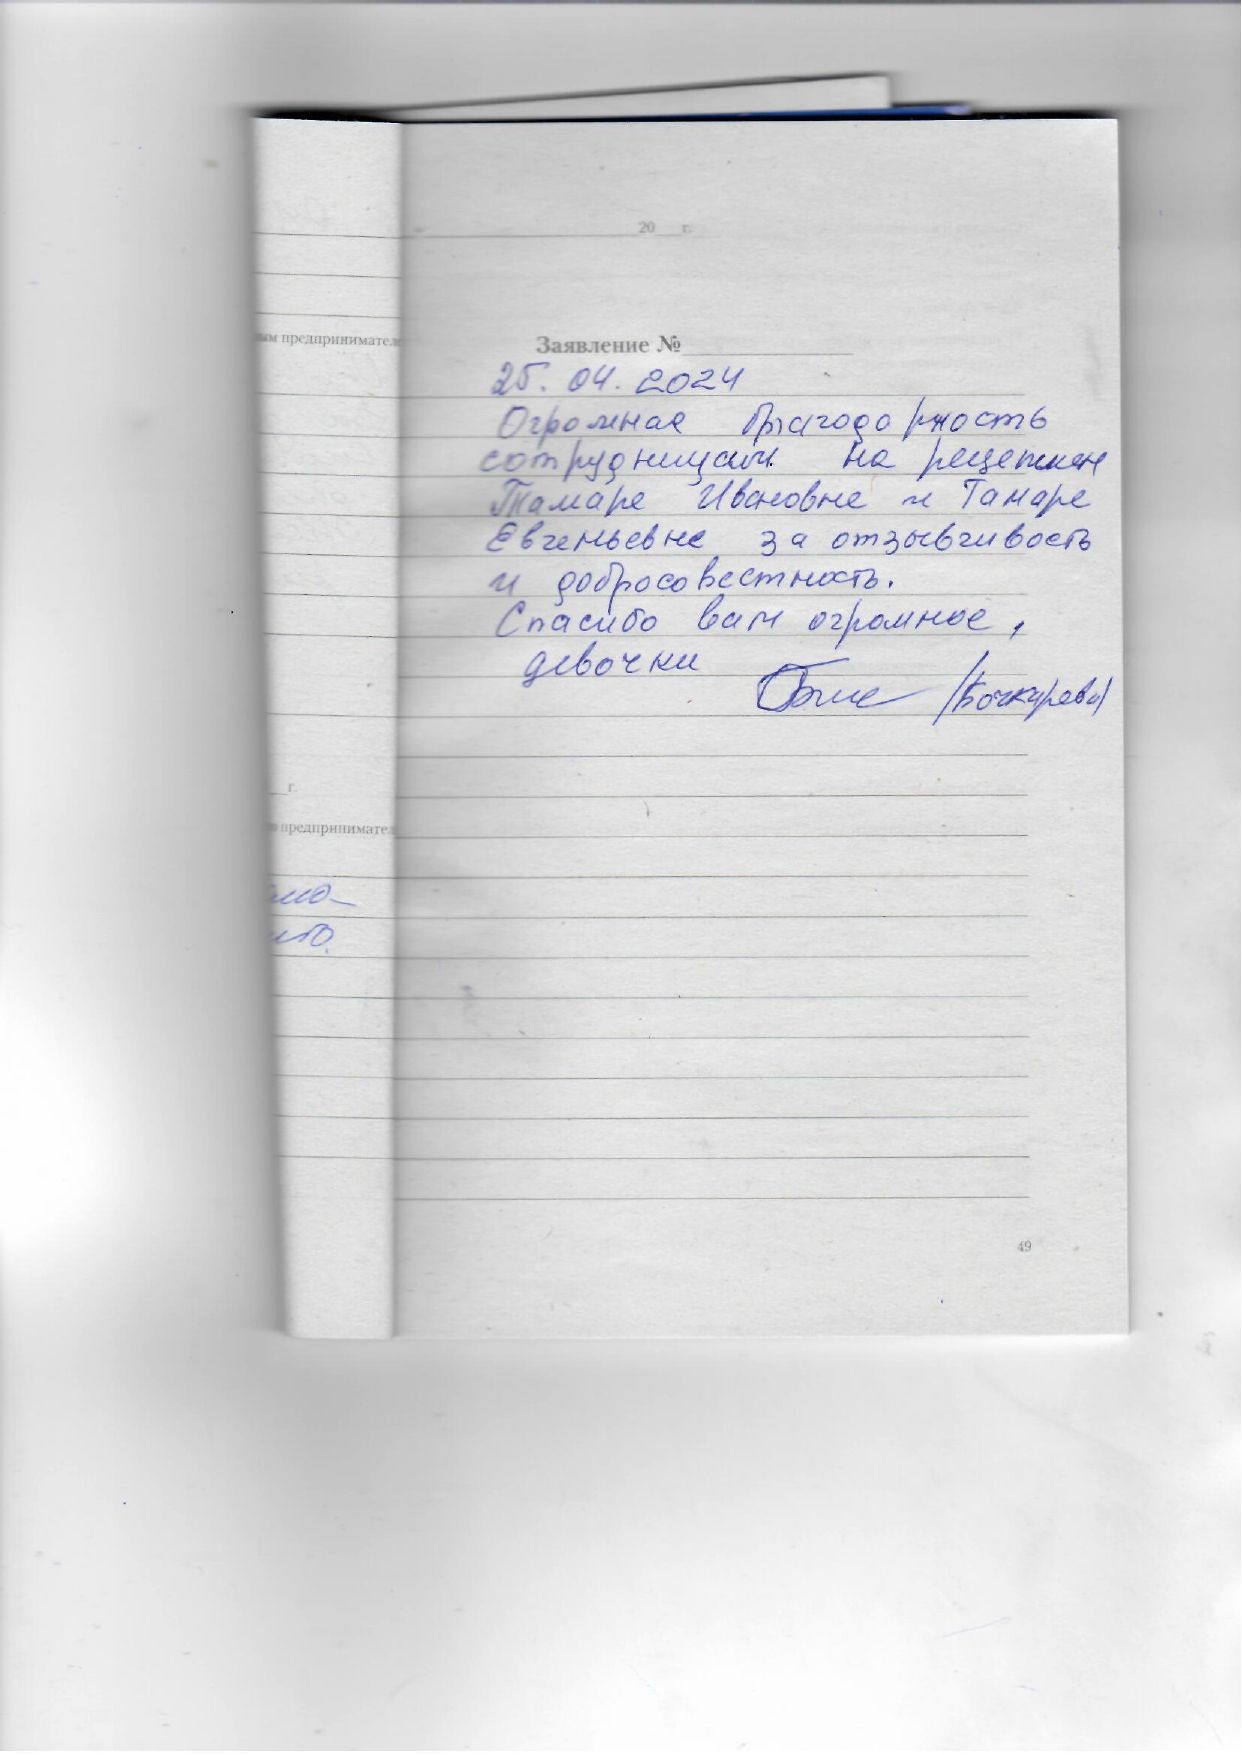 20___г.
Заявление №
25. 04. 2024
Огромная благодарность
сотрудницам на рецепшен
Тамаре Ивановне и Тамаре
Евгеньевне за отзывчивость
и добросовестность.
Спасибо вам огромное,
девочки
/Бочкарева/
ым предпринимател
г.
предпринимател
49